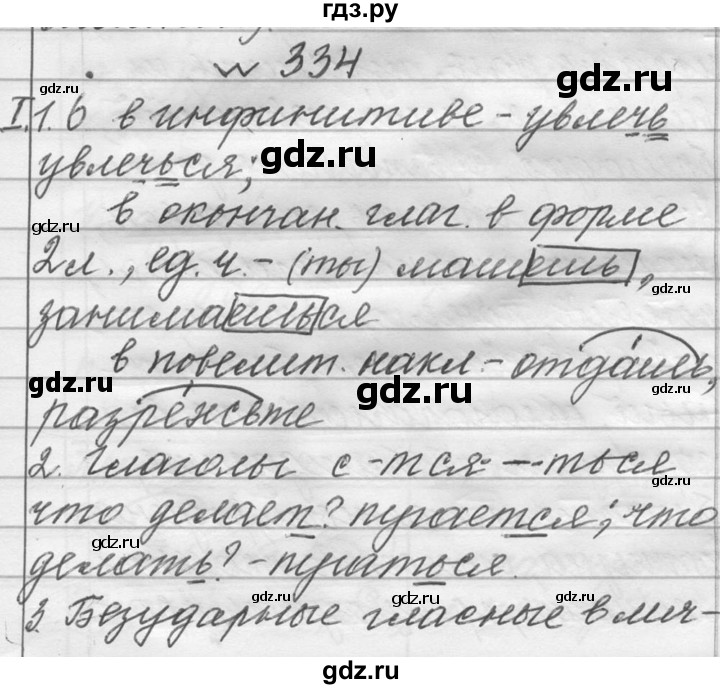 гдз.ру
№ 334
I. 1. Ь в инфинитиве - увлечь
увлечься;
в окончан. глаг. в форме
2 л., ед. ч. - (ты) машешь,
занимаешься
в повелит. накл. - отдашь,
разрежьте
2. Глаголы с -тся - -ться
что делает? пугается; что
делать? - пугаться.
3. Безударные гласные в лич-
gdz.ru
gdz.ru
gdz.ru
gdz.ru
gdz.ru
gdz.ru
gdz.ru
gdz.ru
gdz.ru
gdz.ru
gdz.ru
gdz.ru
gdz.ru
gdz.ru